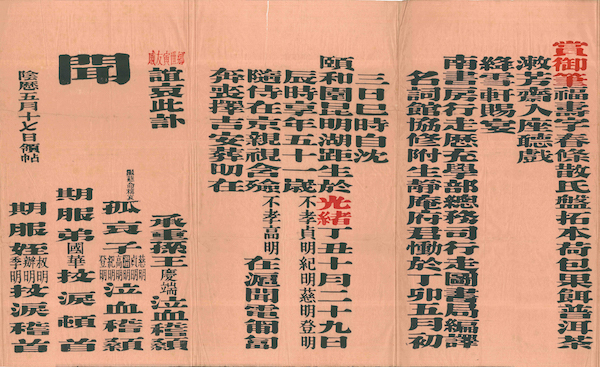 賞御筆福壽字春條散氏盤拓本荷包果餌普洱茶
漱芳齋入座聽戲
絳雪軒賜宴
南書房行走歷充學部總務司行走圖書局編譯
名詞館協修附生靜庵府君慟於丁卯五月初
三日巳時自沈
頤和園昆明湖距生於光緒丁丑十月二十九日
辰時享年五十一歲不孝貞明紀明慈明登明
隨侍在京親視含殮不孝高明在滬聞電匍匐
奔喪擇吉安葬叨在
鄉世寅友戚誼哀此訃
聞
承重孫王慶端泣血稽顙
孤哀子慈明貞明高明紀明登明泣血稽顙
期服弟國華抆淚頓首
期服姪叔明辦明季明抆淚稽首
陰曆五月十七日領帖